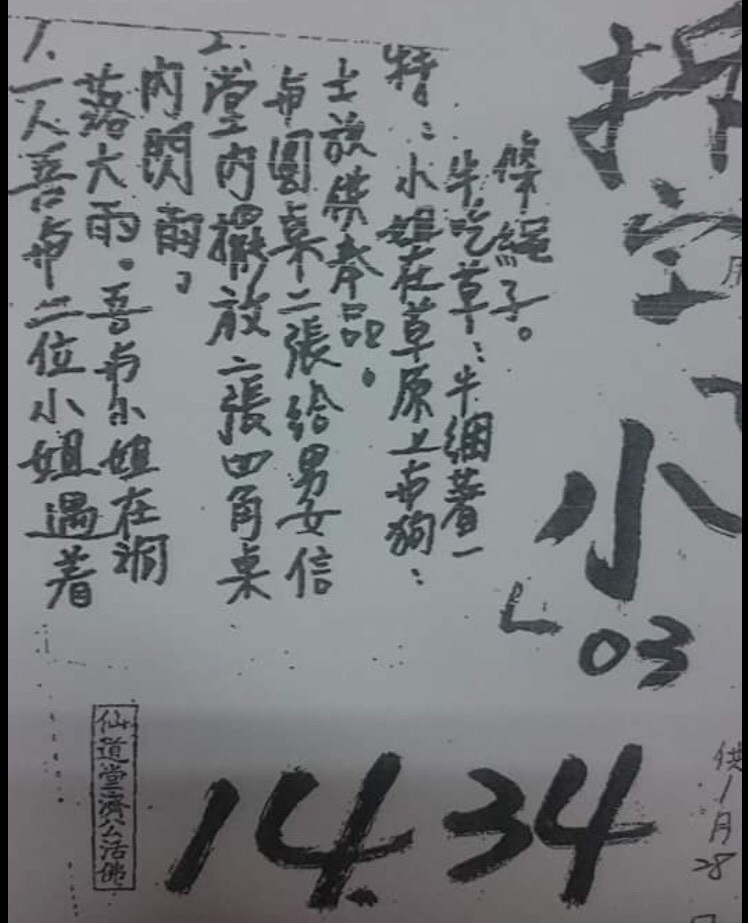 1.一人吾与二位小姐遇着
落大雨。吾与小姐在洞
內閃雨。
2.堂內擺放二張四角桌
与圓桌二張給男女信
士放供奉品。
特:小姐在草原上与狗:
牛吃草:牛綑著一
條繩子。
小
03
14.34
仙道堂濟公活佛
供1月28